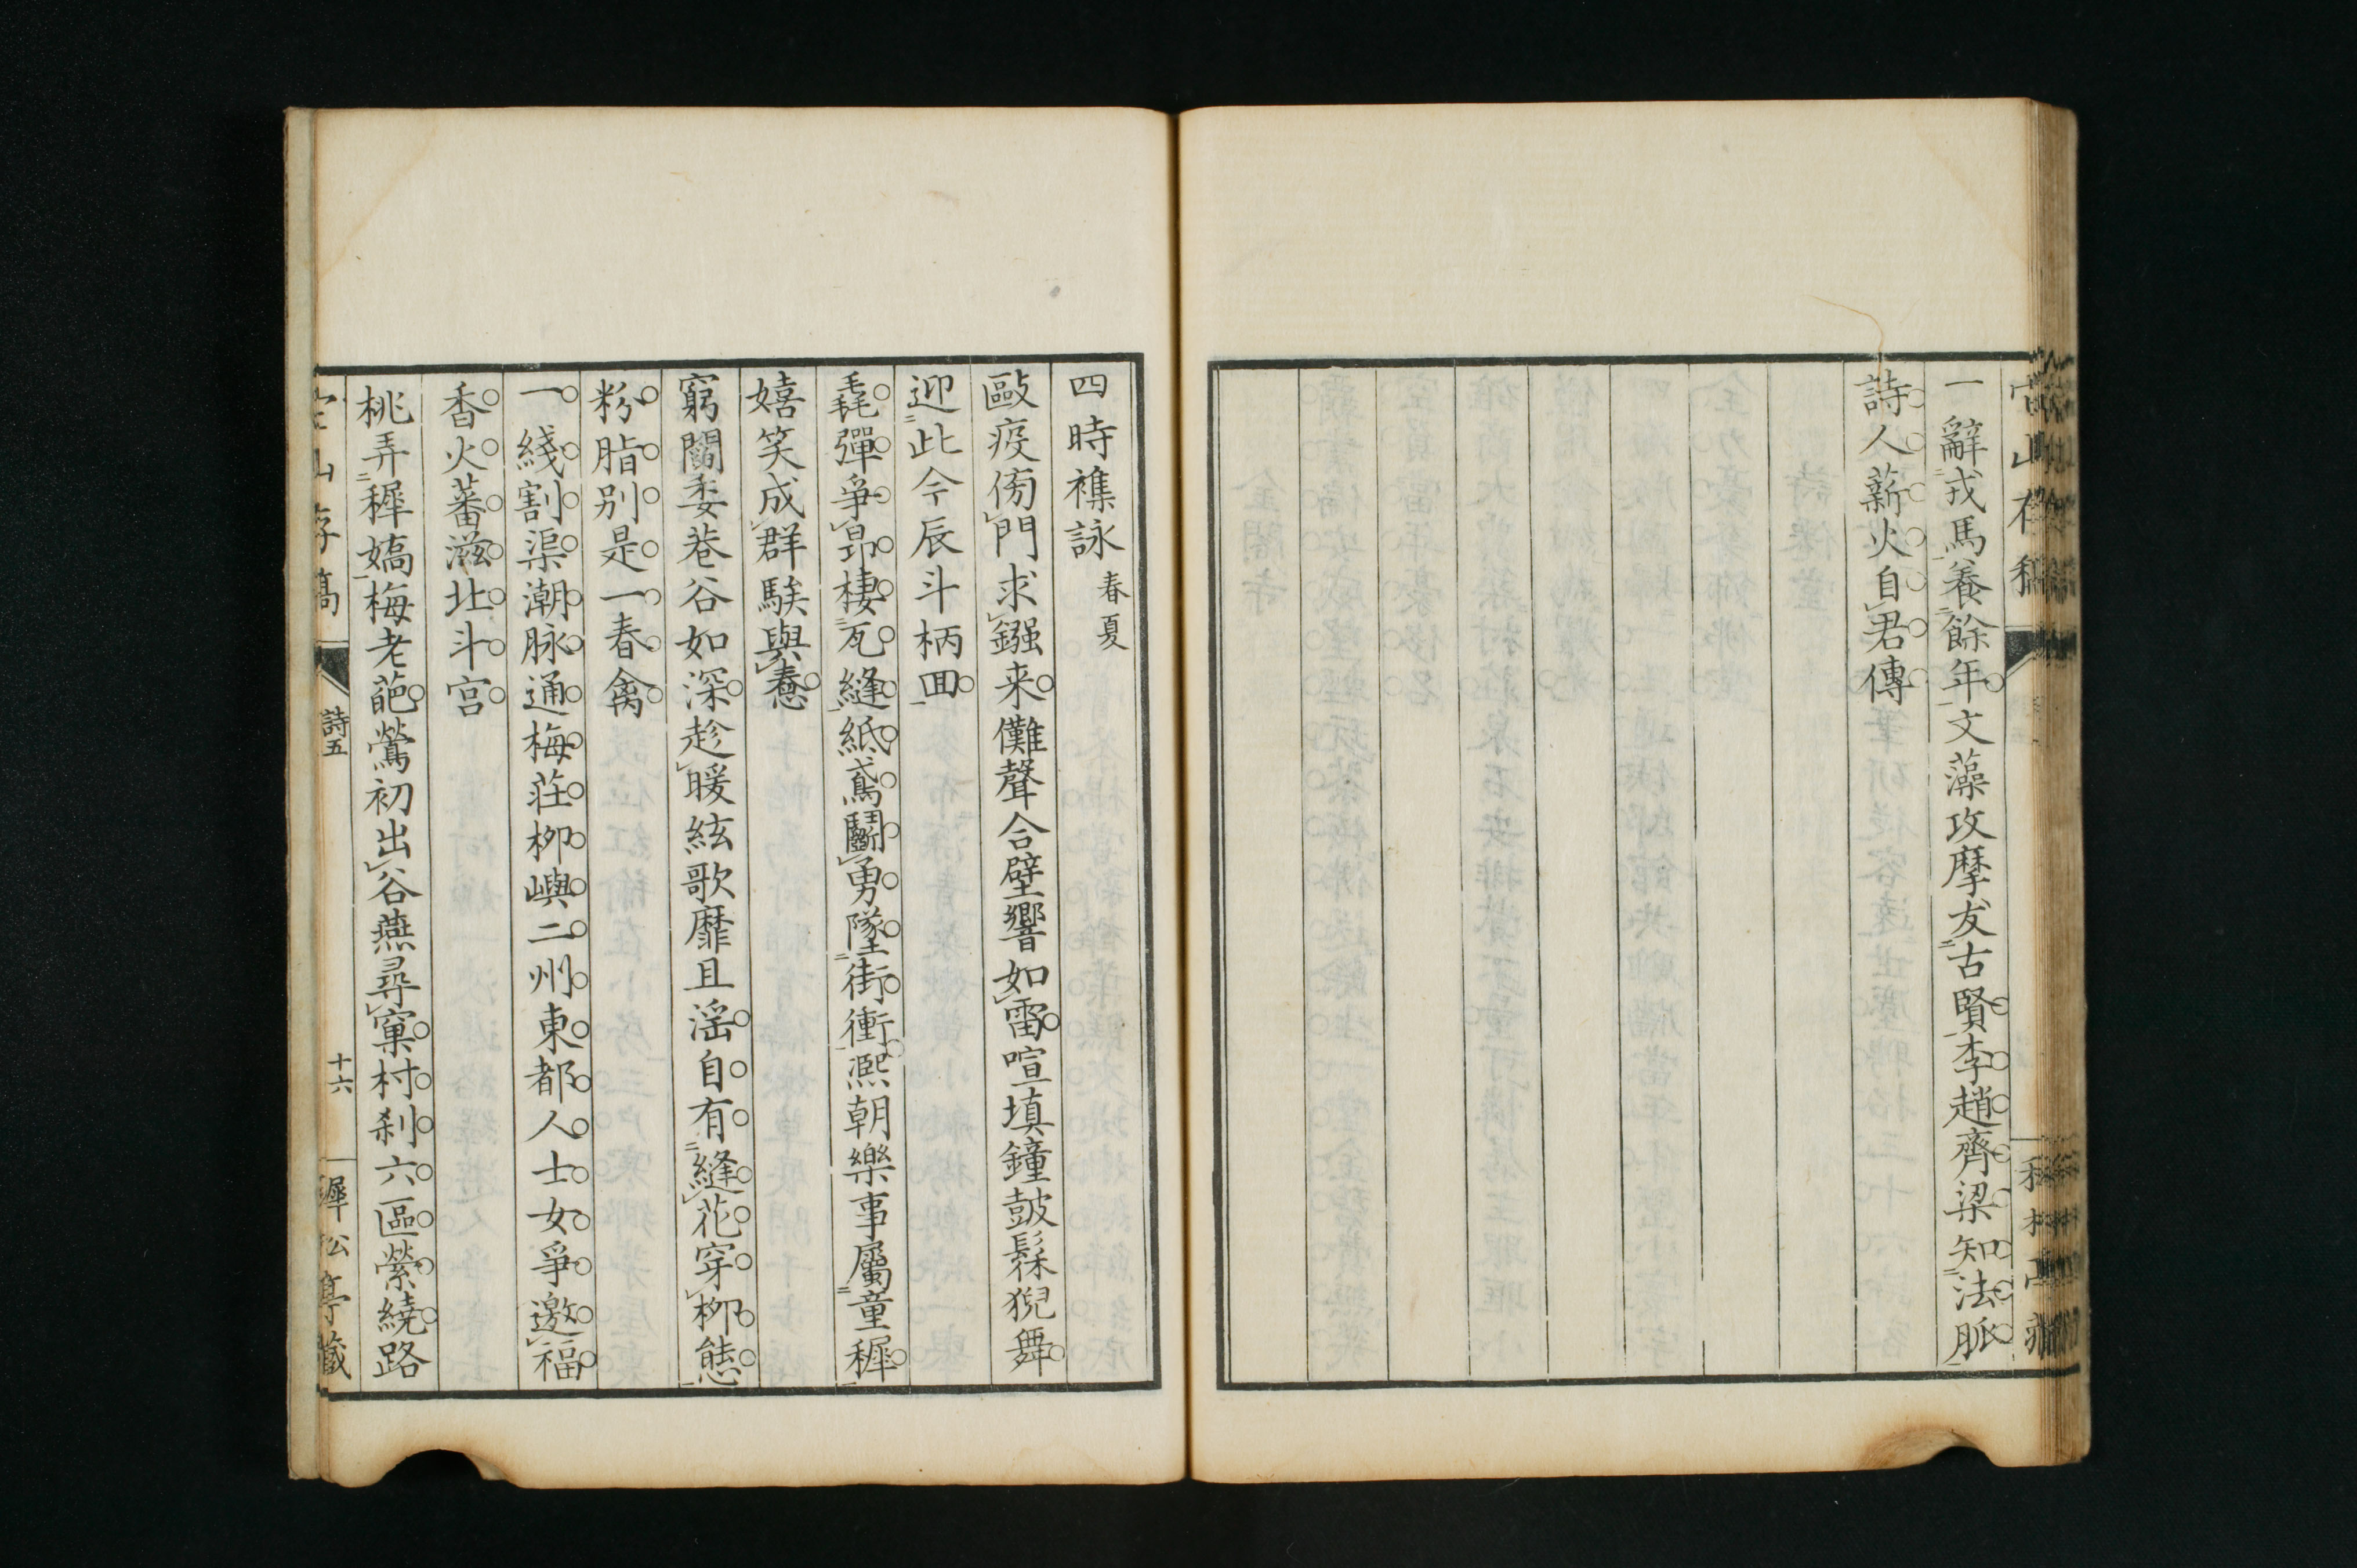 一辭戎馬養餘年文藻攻摩友古賢李趙齊梁知法脈
詩人薪火自君傳
四時襍詠春夏
毆疫傍門求鏹来儺聲合壁響如雷喧塡鐘皷髹猊舞
迎此今辰斗柄回
毳彈爭昻棲瓦縫紙鳶鬭勇墜街衝熈朝樂事屬童穉
嬉笑成群騃與惷
窮閻委巷谷如深趁暖絃歌靡且滛自有縫花穿柳態
粉脂别是一春禽
一綫割渠潮脉通梅莊柳嶼二州東都人士女爭邀福
香火蕃滋北斗宮
桃弄穉嬌梅老葩鶯初出谷燕尋窠村刹六區縈繞路
存稿
詩五
十六
穉松亭藏